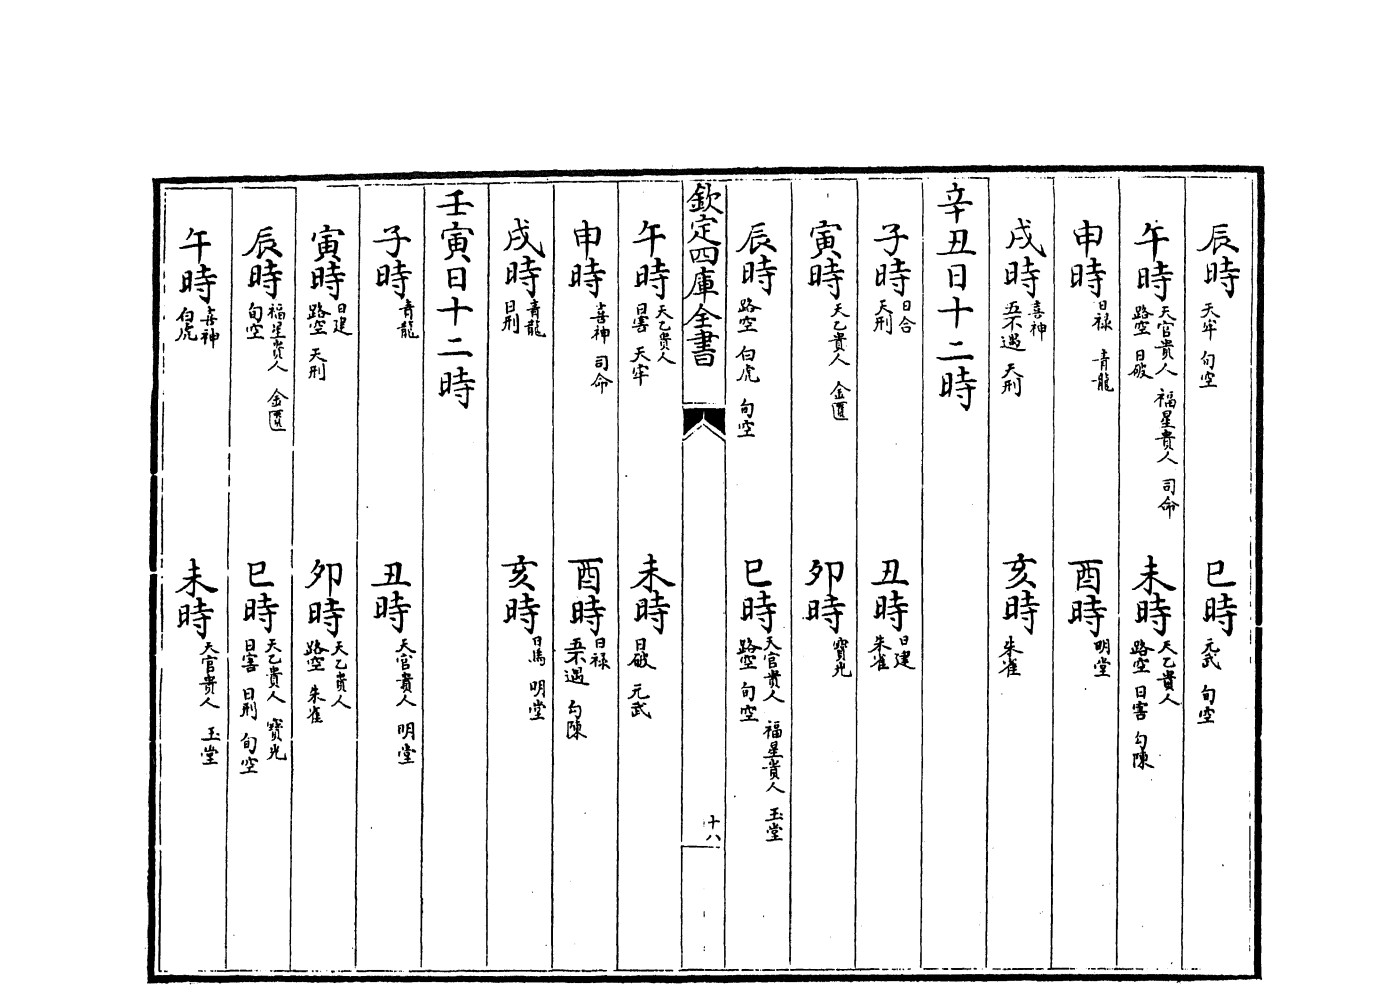 辰時 天牢 旬空 巳時 元武 旬空
午時 天官貴人 福星貴人 司命 路空 日破 未時 天乙貴人 路空 日害 勾陳
申時 日禄 青龍 酉時 明堂
戌時 喜神 五不遇 天刑 亥時 朱雀
辛丑日十二時
子時 日合 天刑 丑時 日建 朱雀
寅時 天乙貴人 金匱 卯時 寶光
辰時 路空 白虎 旬空 巳時 天官貴人 福星貴人 玉堂 路空 旬空
欽定四庫全書 十八
午時 天乙貴人 日害 天牢 未時 日破 元武
申時 喜神 司命 酉時 日禄 五不遇 勾陳
戌時 青龍 日刑 亥時 日馬 明堂
壬寅日十二時
子時 青龍 丑時 天官貴人 明堂
寅時 日建 路空 天刑 卯時 天乙貴人 路空 朱雀
辰時 福星貴人 金匱 旬空 巳時 天乙貴人 寶光 日害 日刑 旬空
午時 喜神 白虎 未時 天官貴人 玉堂